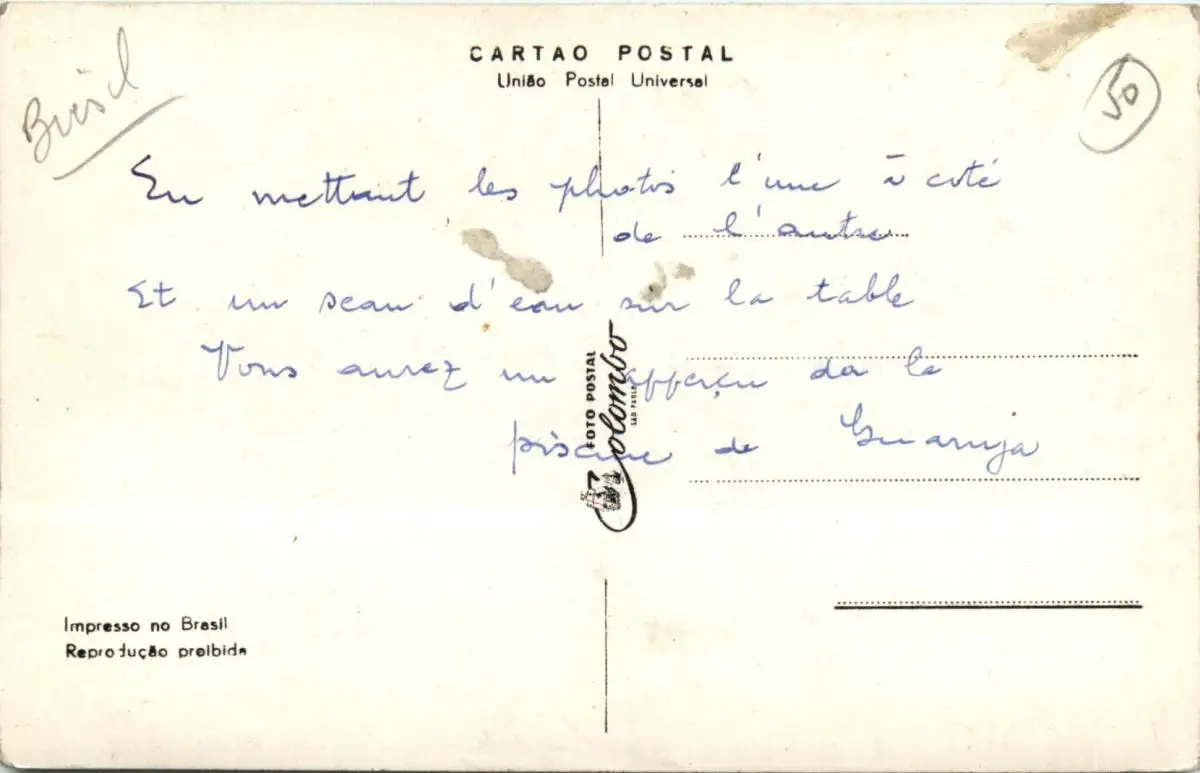 CARTAO POSTAL
União Postal Universal
Brésil
50
En mettant les photos l'une à coté
de l'autre
Et un seau d'eau sur la table
Vous aurez un apperçu da la
piscine de Guaruja
FOTO POSTAL
Colombo
SÃO PAULO
Impresso no Brasil
Reprodução proibida